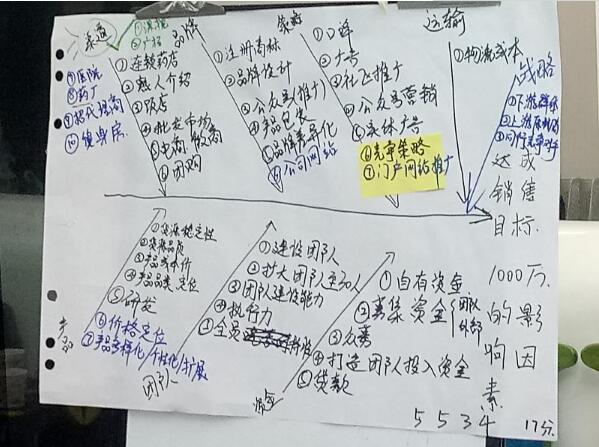 渠道
⑦医院
⑧药厂
⑨招代理商
⑩健身房
①连锁药店
②熟人介绍
③饭店
④批发市场
⑤电商、微商
⑥团购
品牌
①注册商标
②品牌设计
③公众号(推广)
④产品包装
⑤品牌差异化
⑥公司网站
策略
①口碑
②广告
③社区推广
④公众号营销
⑤实体广告
⑥竞争策略
⑦门户网站推广
运输
①物流成本
战略
①下游群体
②上游原材料
③同行竞争对手
达成销售目标1000万的影响因素
①货源稳定性
②货源品质
③产品成本价
④产品品类、定位
⑤研发
⑥价格定位
⑦产品多样化/个性化/扩展
产品
①建设团队
②扩大团队至30人
③团队建设能力
④执行力
⑤全员
团队
①自有资金
②募集资金
团队
外部
③众筹
④打造团队投入资金
⑤贷款
资金
5 5 3 4
17分